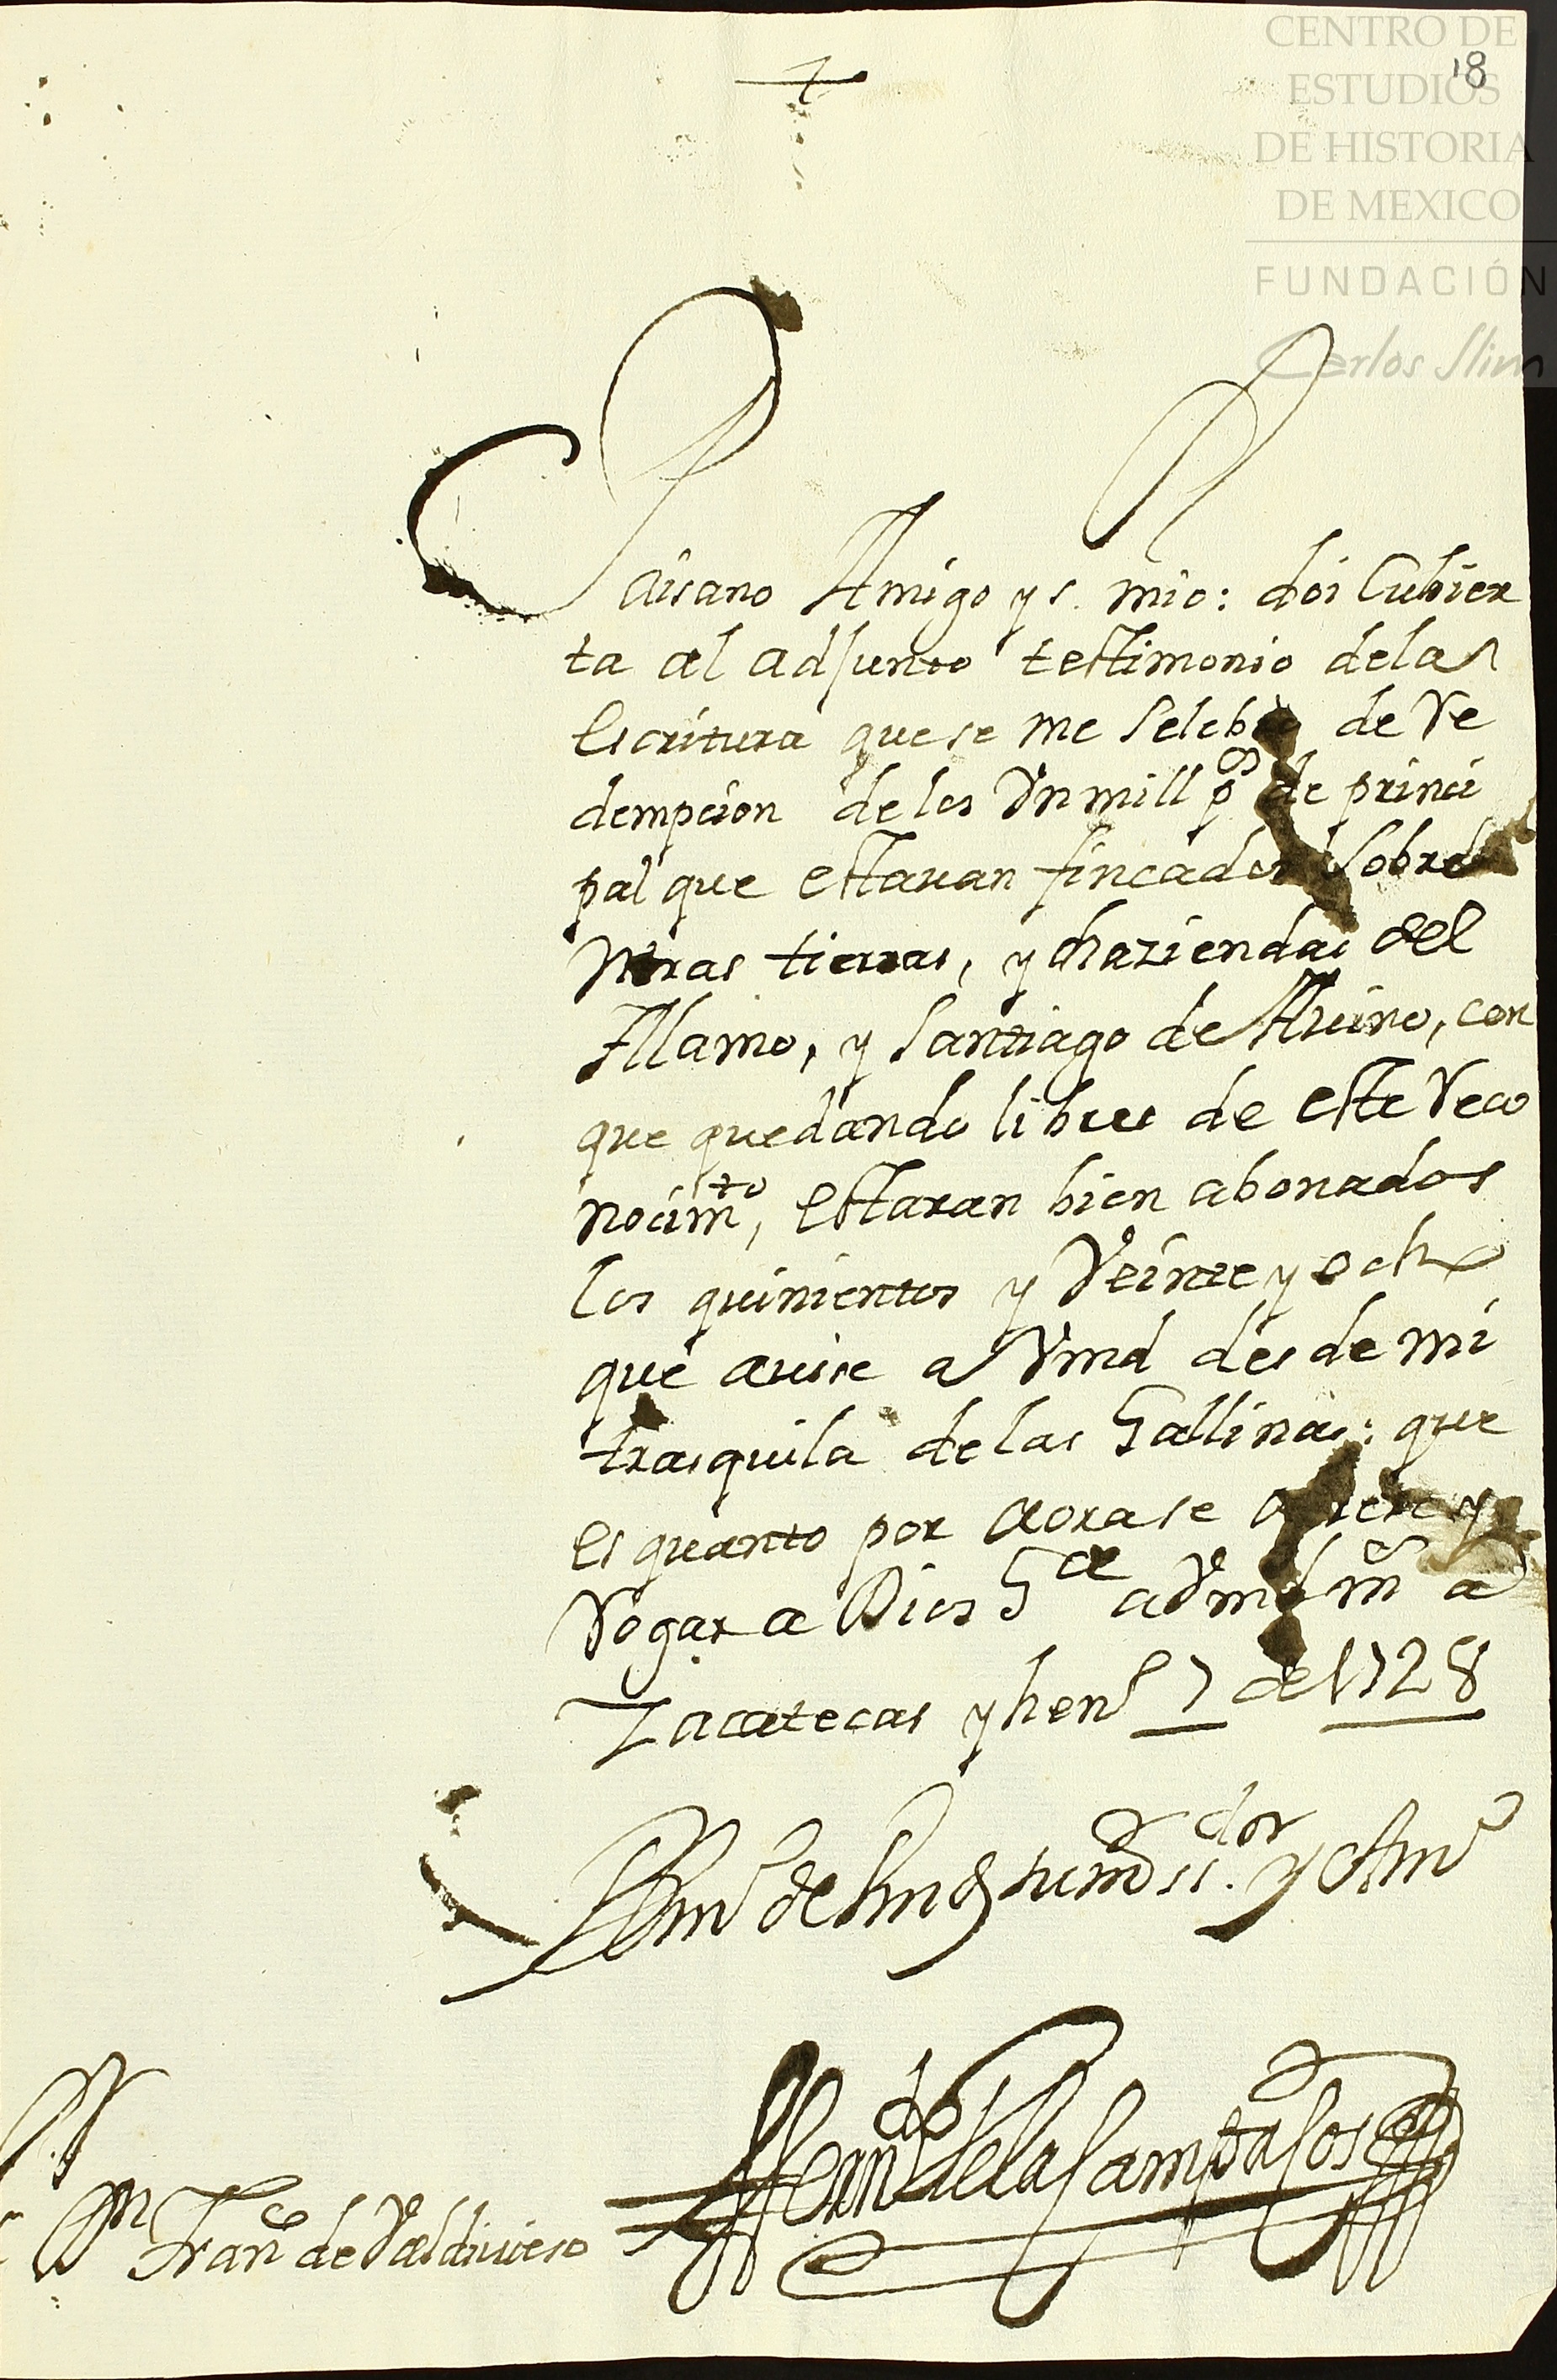 CENTRO DE
ESTUDIOS
DE HISTORIA
DE MEXICO
FUNDACIÓN
Carlos Slim
18
Paisano Amigo y s. mio: doi Cubier
ta al adjunto testimonio de la
Escritura que se me Selebro de Re
dempcion de los Vn mill ps de princi
pal que estavan fincados Sobre
ntras tierras, y haziendas del
Alamo, y Santiago de Avino, con
que quedando libres de este Reco
nocimto, estaran bien abonados
los quinientos y Veinte y ocho
que avise a Vmd desde mi
trasquila de las Gallinas: que
es quanto por aora se ofrece y
Rogar a Dios Gde a Vmd ms as
Zacatecas y hen 7 de 1728
de Vmd su mas sdor y Amo
Fernando de la Campa Cos
Sr Dn Franco de Valdivieso